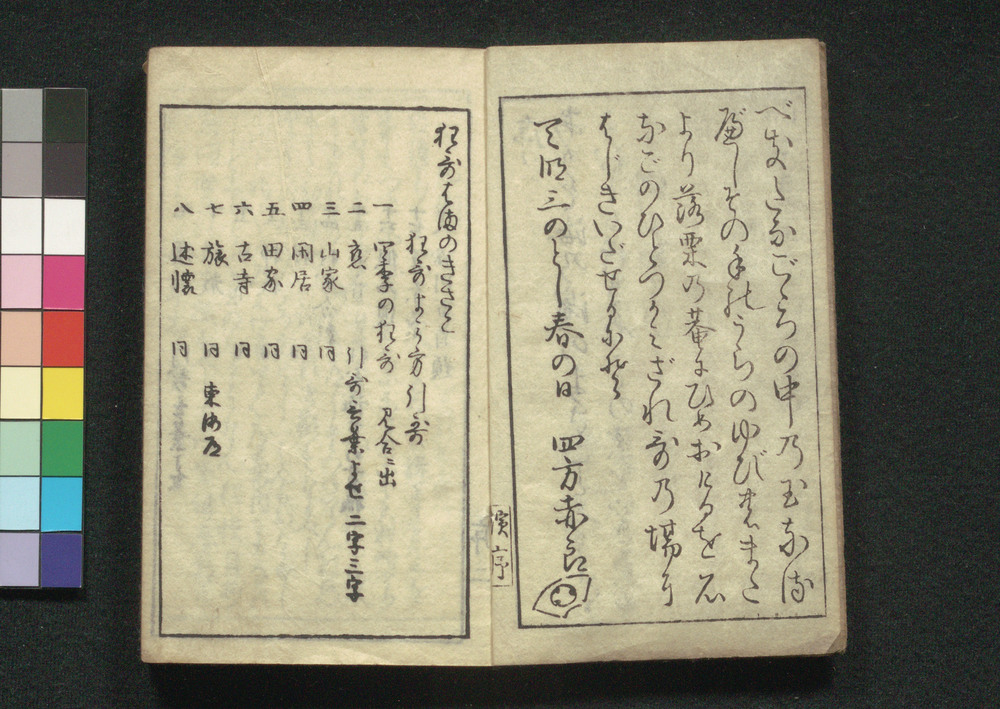 べ来たるなごろの中乃玉ある
しその手のうらのゆびまた
より落栗乃菴にひめおけるを
なごのひとつかみざれ哥乃場に
はじきいだせるになん
天明三のとし春の日 四方赤良
濱序
狂哥はまのきさご
狂哥よみ方引哥
一 四季の狂哥 見合ニ出
二 恋 引哥 言葉よせ 二字三字
三 山家 同
四 閑居 同
五 田家 同
六 古寺 同
七 旅 同 東海道
八 述懐 同